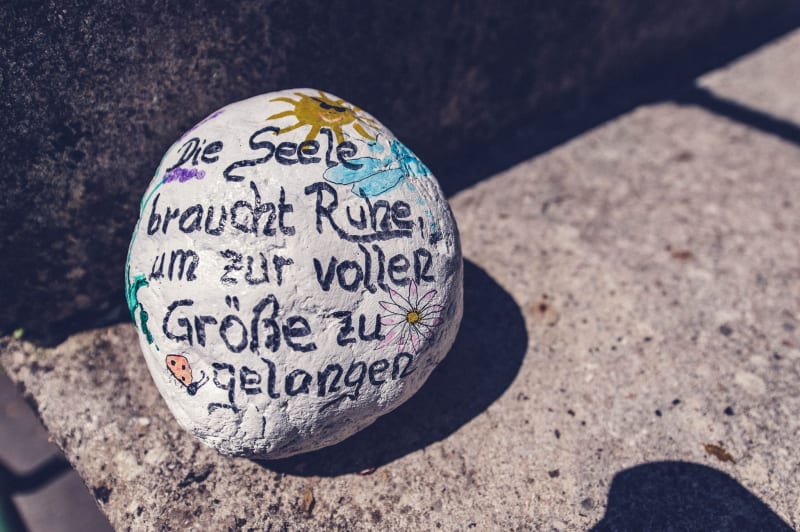 Die Seele
braucht Ruhe,
um zur vollen
Größe zu
gelangen